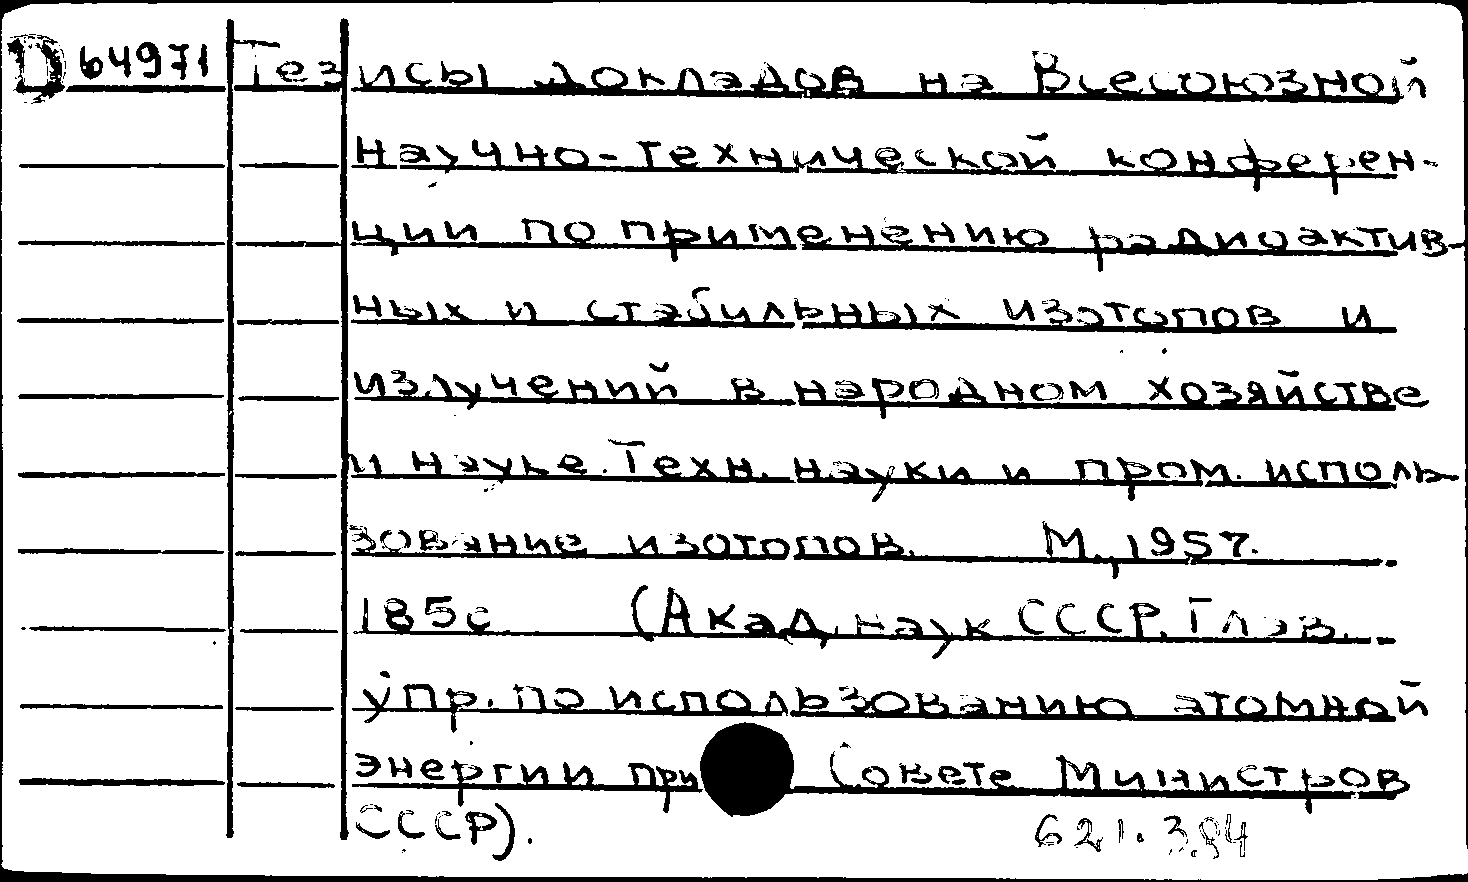 D 64971 Тезисы докладов на Всесоюзной
научно-технической конферен-
ции по применению радиоактив-
ных и стабильных изотопов и
излучений в народном хозяйстве
и науке. Техн. науки и пром. исполь-
зование изотопов. М., 1957.
185с (Акад. наук СССР. Глав.
упр. по использованию атомной
энергии при Совете Министров
СССР).
621.384